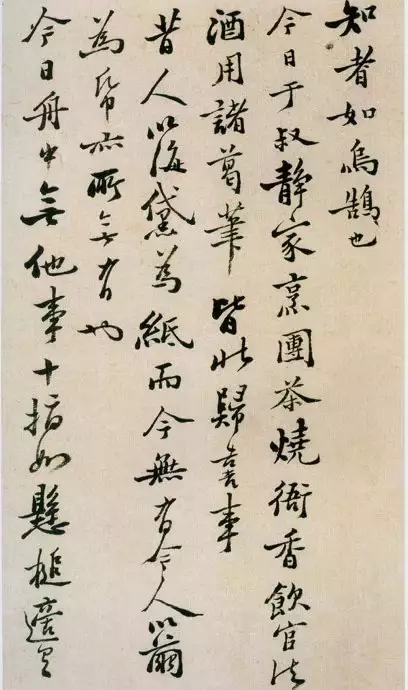 知者如烏鵲也
今日于叔靜家烹團茶燒衙香飲官法
酒用諸葛筆皆北歸喜事
昔人以海黛為紙而今無有今人以
為帋亦所無有也
今日舟中無他事十指如懸槌適